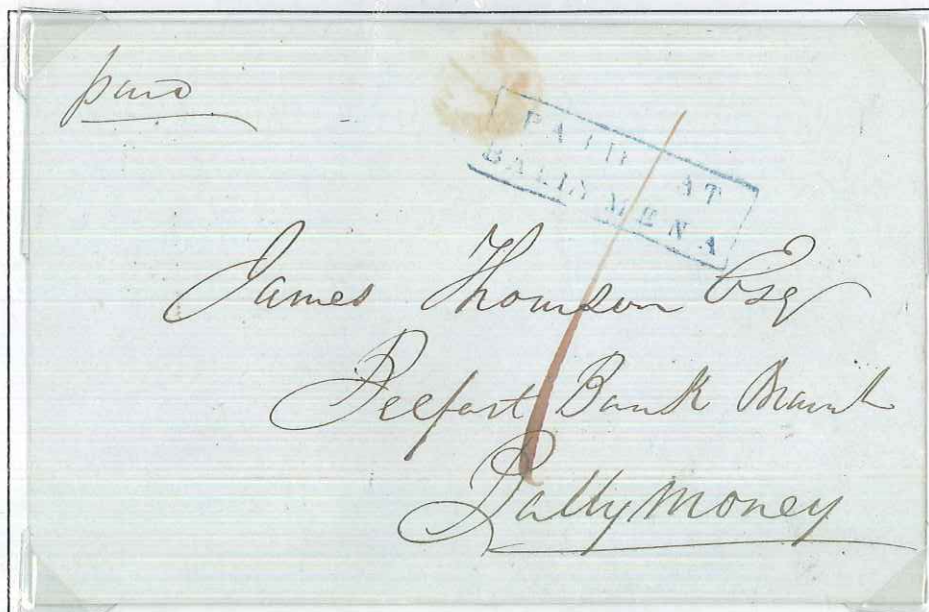 paid
PAID AT
BALLYMENA
1
James Thomson Esq
Belfast Bank Branch
Ballymoney